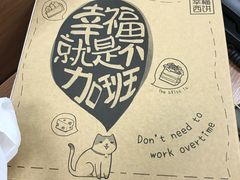 幸福
西饼
幸福
就是不
加班
Don't need to
work overtime